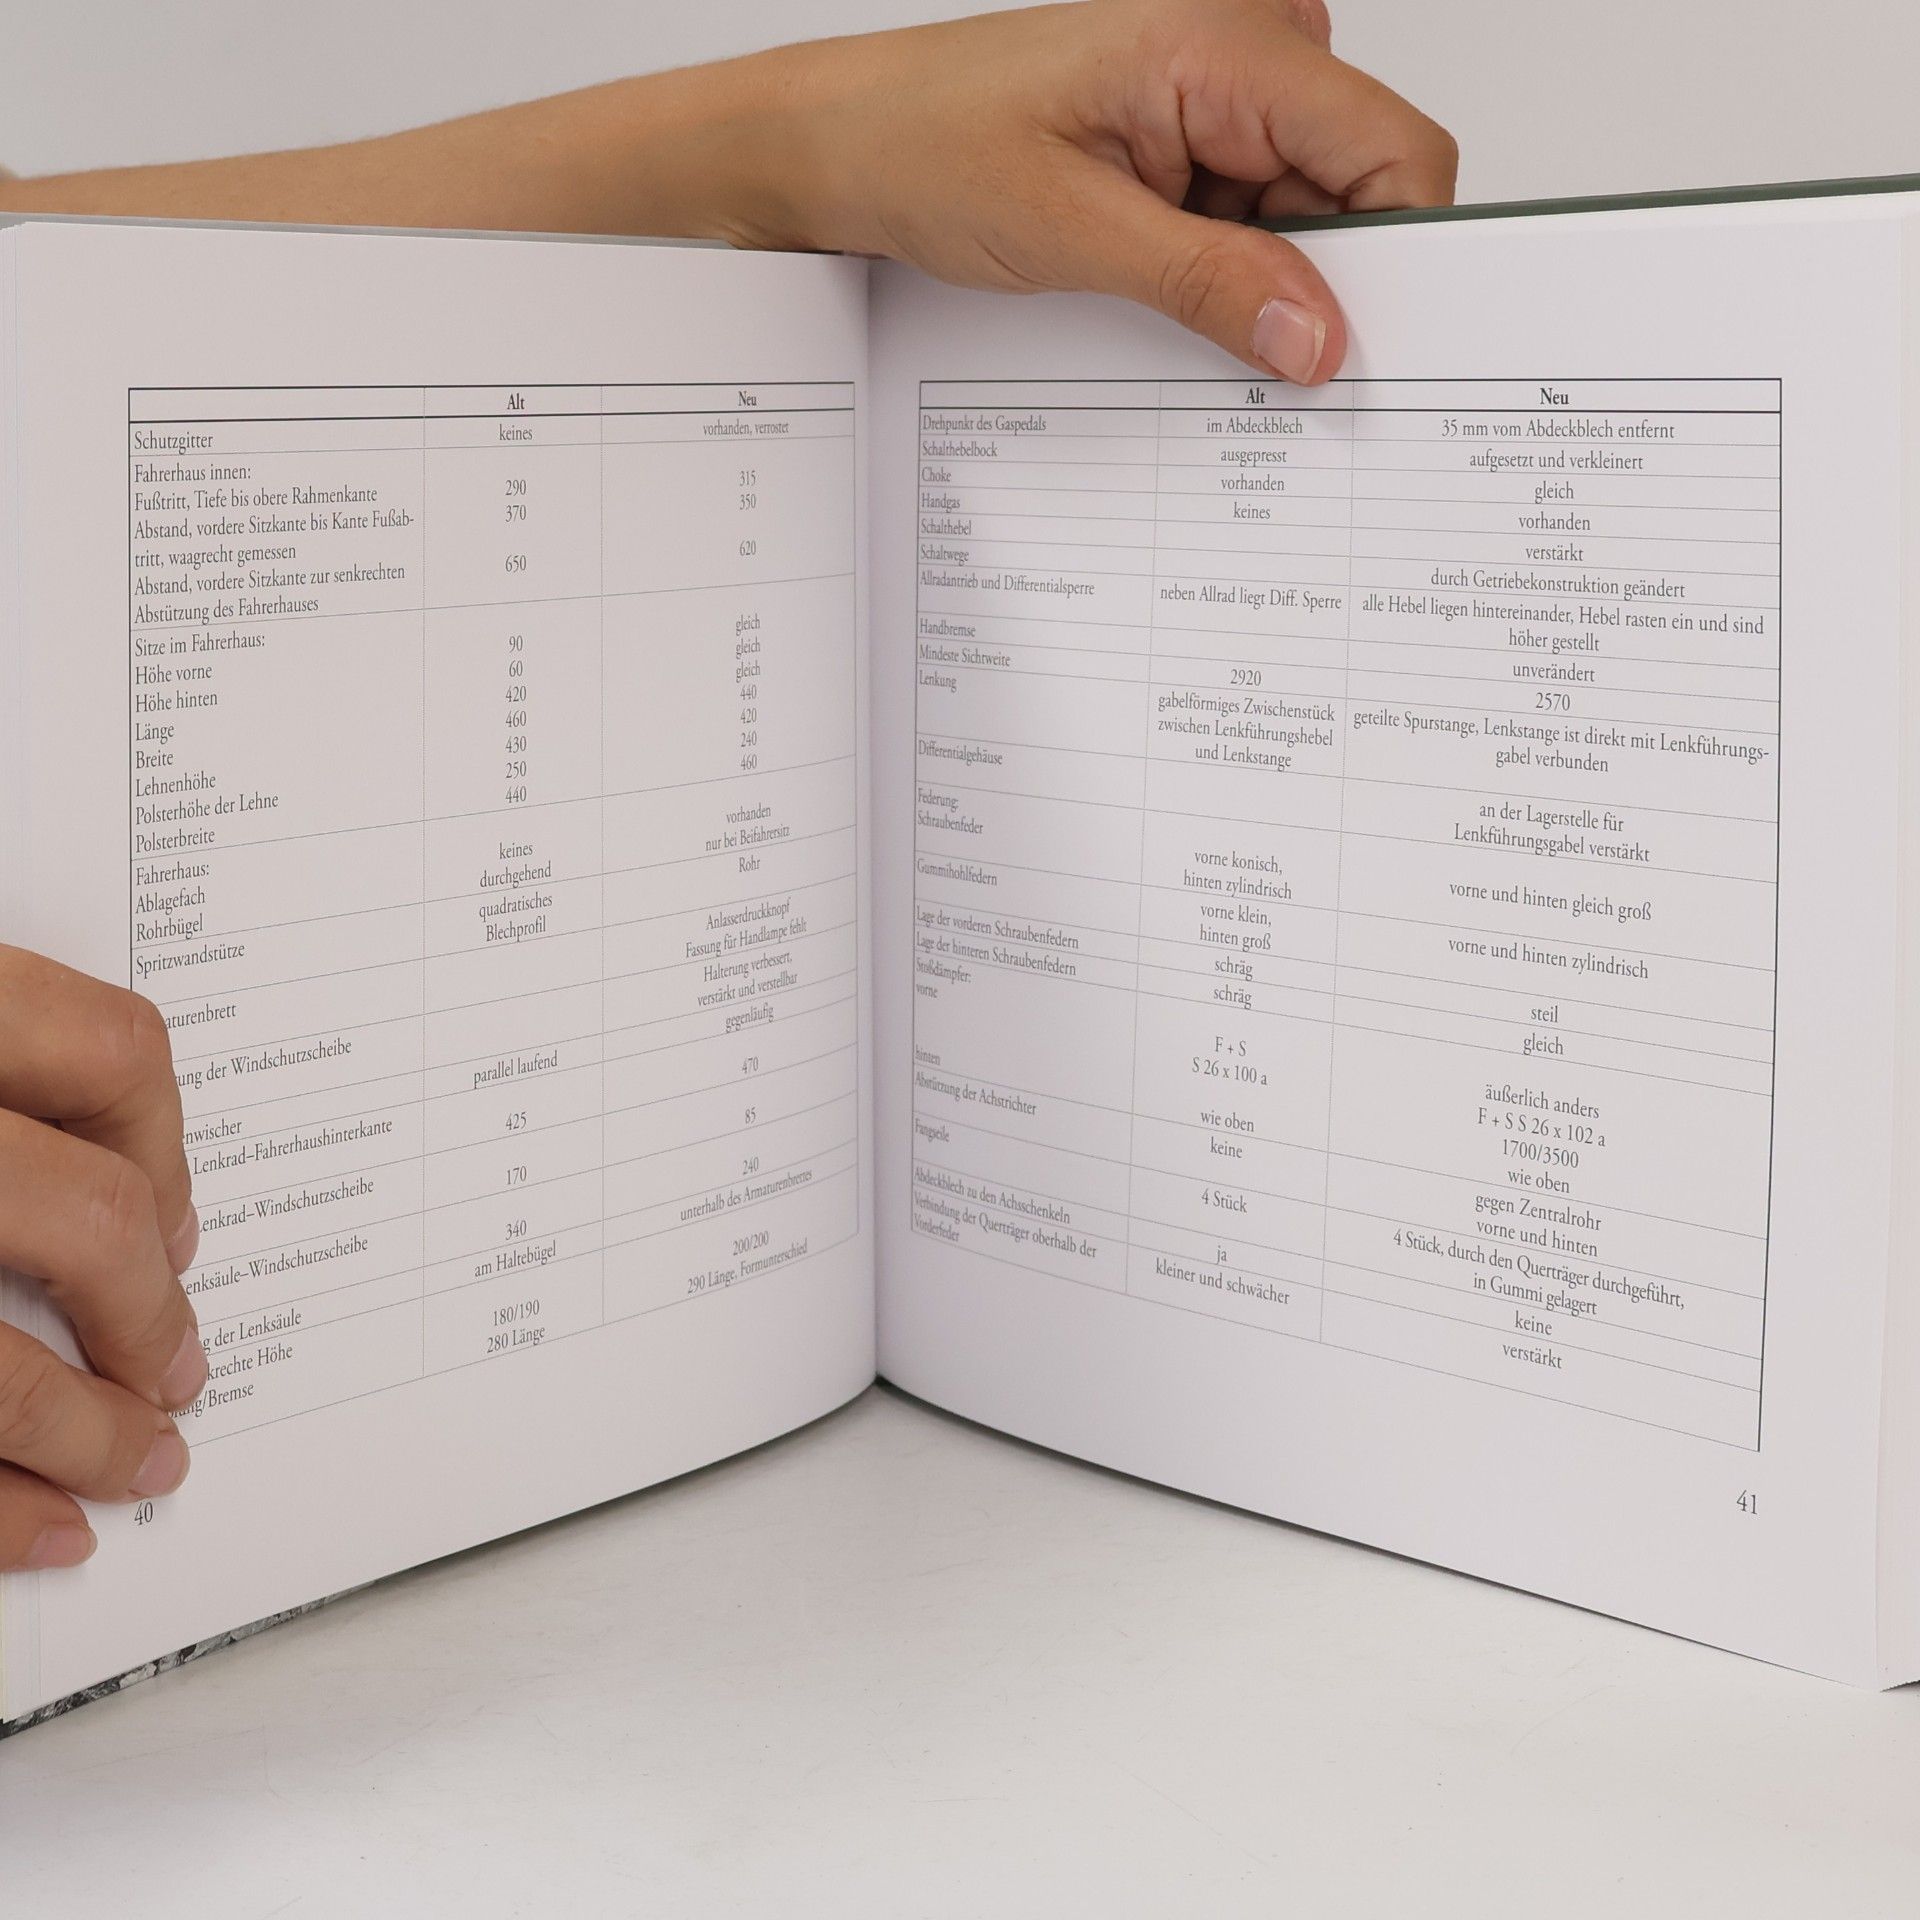 Alt Neu
Schutzgitter keines vorhanden, verrostet
Fahrerhaus innen:
Fußtritt, Tiefe bis obere Rahmenkante 290 315
Abstand, vordere Sitzkante bis Kante Fußab- 370 350
tritt, waagrecht gemessen
Abstand, vordere Sitzkante zur senkrechten 650 620
Abstützung des Fahrerhauses
Sitze im Fahrerhaus:
Höhe vorne 90 gleich
Höhe hinten 60 gleich
Länge 420 gleich
Breite 460 440
Lehnenhöhe 430 420
Polsterhöhe der Lehne 250 240
Polsterbreite 440 460
Fahrerhaus:
Ablagefach keines vorhanden
Rohrbügel durchgehend nur bei Beifahrersitz
Spritzwandstütze quadratisches Rohr
Blechprofil
aturenbrett Anlasserdruckknopf
Fassung für Handlampe fehlt
ung der Windschutzscheibe Halterung verbessert,
verstärkt und verstellbar
nwischer parallel laufend gegenläufig
Lenkrad–Fahrerhaushinterkante 425 470
enkrad–Windschutzscheibe 170 85
enksäule–Windschutzscheibe 340 240
g der Lenksäule am Haltebügel unterhalb des Armaturenbrettes
krechte Höhe 180/190 200/200
g/Bremse 280 Länge 290 Länge, Formunterschied
40
Alt Neu
Drehpunkt des Gaspedals im Abdeckblech 35 mm vom Abdeckblech entfernt
Schalthebelbock ausgepresst aufgesetzt und verkleinert
Choke vorhanden gleich
Handgas keines vorhanden
Schalthebel verstärkt
Schaltwege durch Getriebekonstruktion geändert
Allradantrieb und Differentialsperre neben Allrad liegt Diff. Sperre alle Hebel liegen hintereinander, Hebel rasten ein und sind
höher gestellt
Handbremse unverändert
Mindeste Sichtweite 2920 2570
Lenkung gabelförmiges Zwischenstück geteilte Spurstange, Lenkstange ist direkt mit Lenkführungs-
zwischen Lenkführungshebel gabel verbunden
und Lenkstange
Differentialgehäuse an der Lagerstelle für
Lenkführungsgabel verstärkt
Federung:
Schraubenfeder vorne konisch, vorne und hinten gleich groß
hinten zylindrisch
Gummihohlfedern vorne klein, vorne und hinten zylindrisch
hinten groß
Lage der vorderen Schraubenfedern schräg steil
Lage der hinteren Schraubenfedern schräg gleich
Stoßdämpfer:
vorne F + S äußerlich anders
S 26 x 100 a F + S S 26 x 102 a
1700/3500
hinten wie oben wie oben
Abstützung der Achstrichter keine gegen Zentralrohr
vorne und hinten
Fangseile 4 Stück 4 Stück, durch den Querträger durchgeführt,
in Gummi gelagert
Abdeckblech zu den Achsschenkeln ja keine
Verbindung der Querträger oberhalb der kleiner und schwächer verstärkt
Vorderfeder
41